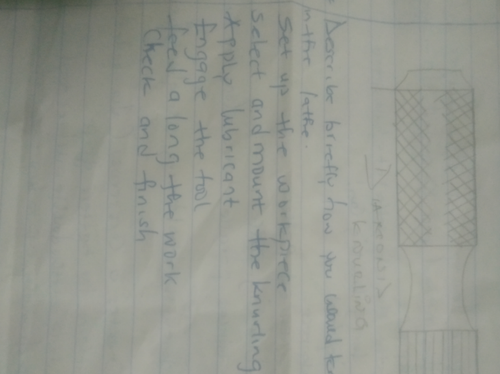 Diamond
knurling
Describe briefly how you would
in the lathe.
Set up the workpiece
Select and mount the knurling
Apply lubricant
Engage the tool
feed a long the work
Check and finish